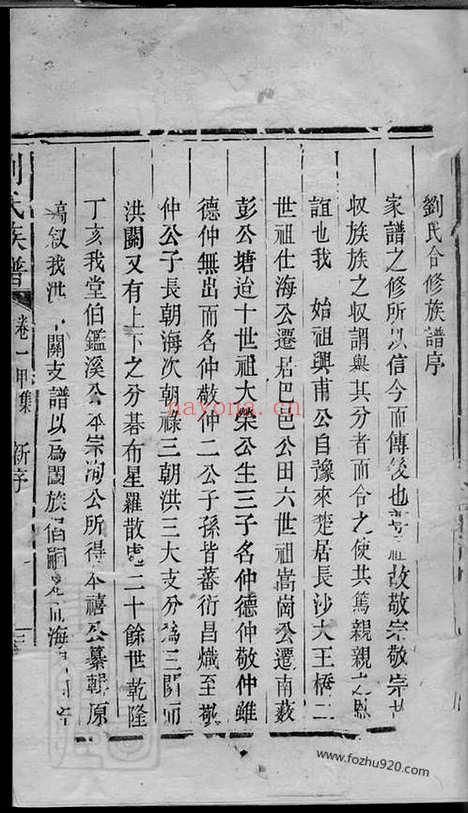 劉氏合修族譜序
家譜之修所以信今而傳後也 祖故敬宗敬宗
収族族之収謂與其分者而合之使共篤親親之恩
誼也我 始祖興甫公自豫來楚居長沙大王橋二
世祖仕海公遷居巴邑公田六世祖嵩崗公遷南薮
彭公塘迨十世祖大榮公生三子名仲德仲敬仲雖
德仲無出而名仲敬仲二公子孫皆蕃衍昌熾至敬
仲公子長朝海次朝祿三朝洪三大支分為三關而
洪關又有上下之分碁布星羅散處二十餘世乾隆
丁亥我堂伯鑑溪公本宗洵公所得本禧公纂輯原
稿叙我洪 關支譜以為闔族倡嗣是 海
劉氏族譜 卷一甲集 新序
nayona.cn
www.fozhu920.com